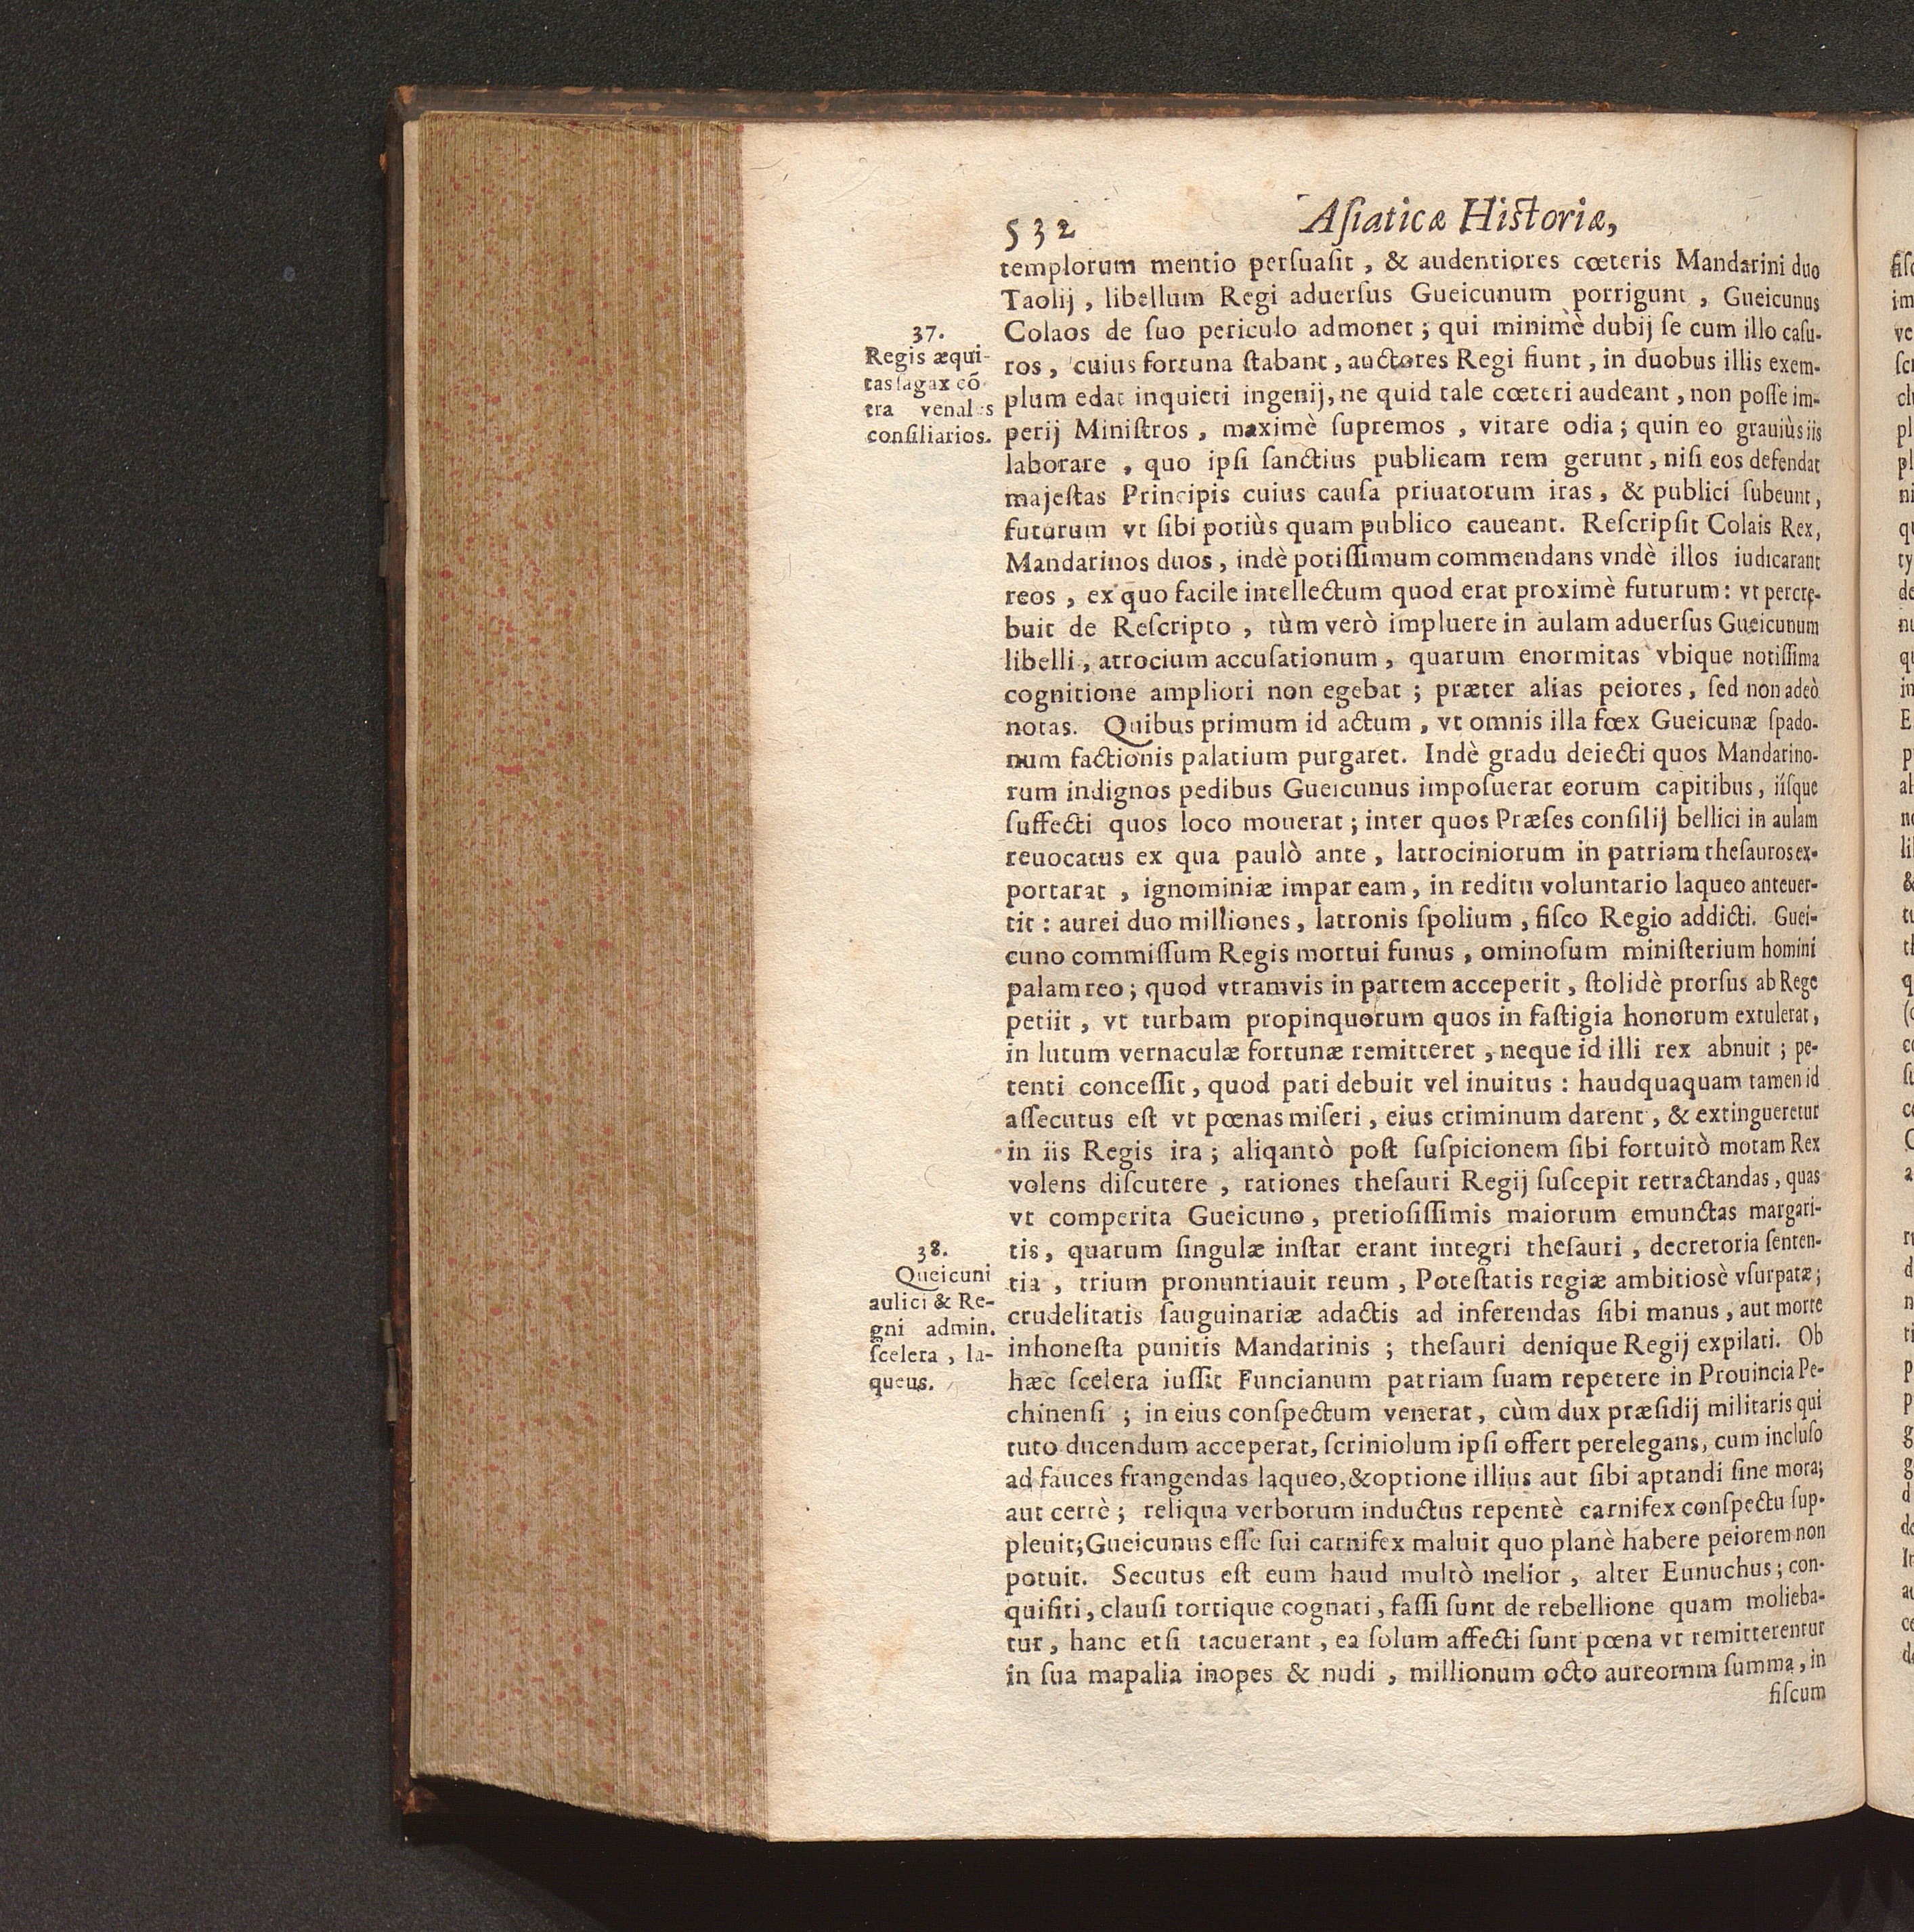 532
Aſiaticæ Hiſtoriæ,
templorum mentio perſuaſit, & audentiores cœteris Mandarini duo
Taolij, libellum Regi aduerſus Gueicunum porrigunt, Gueicunus
Colaos de ſuo periculo admonet; qui minimè dubij ſe cum illo caſu-
ros, cuius fortuna ſtabant, auctores Regi fiunt, in duobus illis exem-
plum edat inquieti ingenij, ne quid tale cœteri audeant, non poſſe im-
perij Miniſtros, maximè ſupremos, vitare odia; quin eo grauiùs iis
laborare, quo ipſi ſanctius publicam rem gerunt, niſi eos defendat
majeſtas Principis cuius cauſa priuatorum iras, & publici ſubeunt,
futurum vt ſibi potiùs quam publico caueant. Reſcripſit Colais Rex,
Mandarinos duos, indè potiſſimum commendans vndè illos iudicarant
reos, ex quo facile intellectum quod erat proximè futurum: vt percre-
buit de Reſcripto, tùm verò impluere in aulam aduerſus Gueicunum
libelli, atrocium accuſationum, quarum enormitas vbique notiſſima
cognitione ampliori non egebat; præter alias peiores, ſed non adeò
notas. Quibus primum id actum, vt omnis illa fœx Gueicunæ ſpado-
num factionis palatium purgaret. Indè gradu deiecti quos Mandarino-
rum indignos pedibus Gueicunus impoſuerat eorum capitibus, iíſque
ſuffecti quos loco mouerat; inter quos Præſes conſilij bellici in aulam
reuocatus ex qua paulò ante, latrociniorum in patriam theſauros ex-
portarat, ignominiæ impar eam, in reditu voluntario laqueo anteuer-
tit: aurei duo milliones, latronis ſpolium, fiſco Regio addicti. Guei-
cuno commiſſum Regis mortui funus, ominoſum miniſterium homini
palam reo; quod vtramvis in partem acceperit, ſtolidè prorſus ab Rege
petiit, vt turbam propinquorum quos in faſtigia honorum extulerat,
in lutum vernaculæ fortunæ remitteret, neque id illi rex abnuit; pe-
tenti conceſſit, quod pati debuit vel inuitus: haudquaquam tamen id
aſſecutus eſt vt pœnas miſeri, eius criminum darent, & extingueretur
in iis Regis ira; aliqantò poſt ſuſpicionem ſibi fortuitò motam Rex
volens diſcutere, rationes theſauri Regij ſuſcepit retractandas, quas
vt comperita Gueicuno, pretioſiſſimis maiorum emunctas margari-
tis, quarum ſingulæ inſtar erant integri theſauri, decretoria ſenten-
tia, trium pronuntiauit reum, Poteſtatis regiæ ambitiosè vſurpatæ;
crudelitatis ſauguinariæ adactis ad inferendas ſibi manus, aut morte
inhoneſta punitis Mandarinis; theſauri denique Regij expilati. Ob
hæc ſcelera iuſſit Funcianum patriam ſuam repetere in Prouincia Pe-
chinenſi; in eius conſpectum venerat, cùm dux præſidij militaris qui
tuto ducendum acceperat, ſcriniolum ipſi offert perelegans, cum incluſo
ad fauces frangendas laqueo, & optione illius aut ſibi aptandi ſine mora;
aut certè; reliqua verborum inductus repentè carnifex conſpectu ſup-
pleuit; Gueicunus eſſe ſui carnifex maluit quo planè habere peiorem non
potuit. Secutus eſt eum haud multò melior, alter Eunuchus; con-
quiſiti, clauſi tortique cognati, faſſi ſunt de rebellione quam molieba-
tur, hanc etſi tacuerant, ea ſolum affecti ſunt pœna vt remitterentur
in ſua mapalia inopes & nudi, millionum octo aureornm ſumma, in
fiſcum
37.
Regis æqui-
tas ſagax cō-
tra venales
conſiliarios.
38.
Queicuni
aulici & Re-
gni admin.
ſcelera, la-
queus.